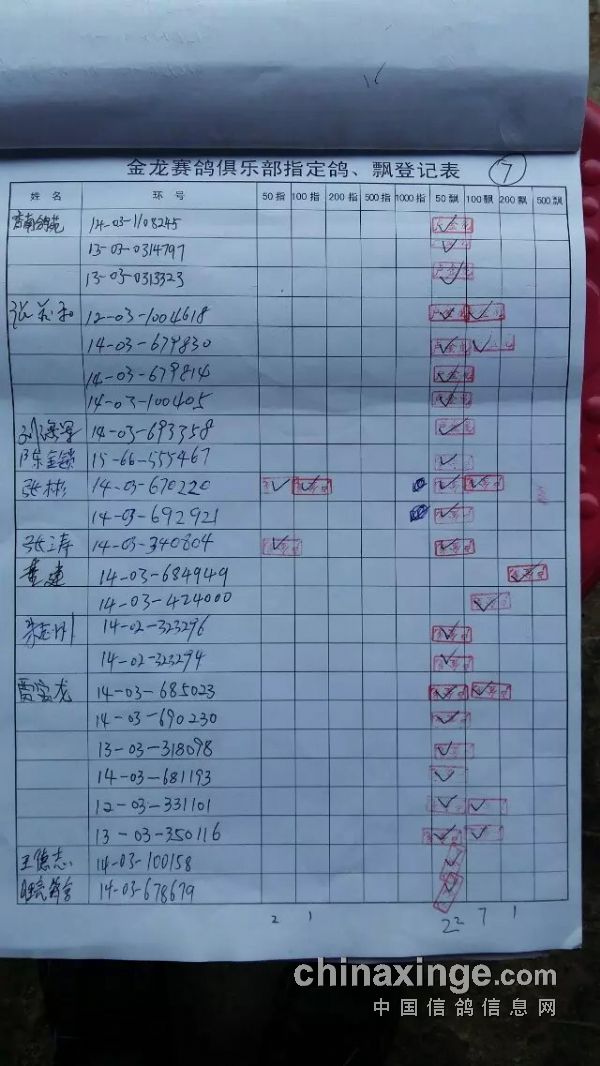 16
金龙赛鸽俱乐部指定鸽、飘登记表 7
姓名 环号 50指 100指 200指 500指 1000指 50飘 100飘 200飘 500飘
14-03-1108245
13-03-0314797
13-03-0313323
12-03-1004618
14-03-679830
14-03-679814
14-03-100405
刘海军 14-03-693358
陈金锁 15-66-555467
张彬 14-03-670220
14-03-692921
张涛 14-03-340804
董建 14-03-684949
14-03-424000
14-02-323296
14-02-323294
雷宝龙 14-03-685023
14-03-690230
13-03-318098
14-03-681193
12-03-331101
13-03-350116
王德志 14-03-100158
14-03-678679
2 1 22 7 1
chinaxinge.com
中国信鸽信息网